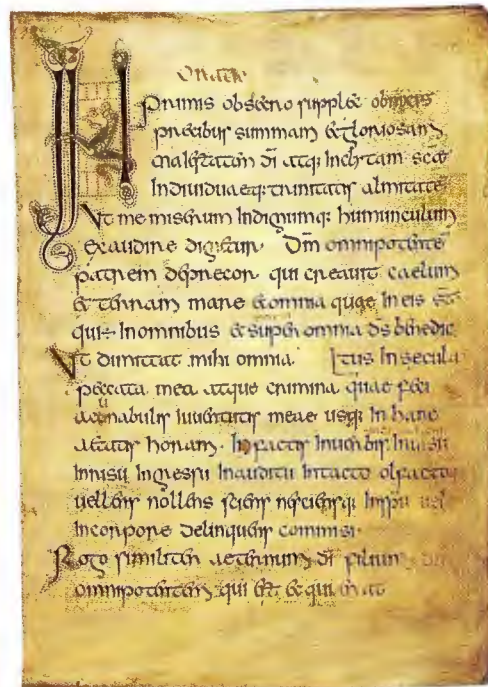 Oratio
In primis obsecro supplex obnixis
precibus summam & gloriosam
maiestatem di atq; inclitam scae
Indiuiduaeq; trinitatis almitate
Ut me miserum Indignumq; humunculum
exaudire dignetur Dm omnipotente
patrem deprecor qui creauit caelum
& terram mare & omnia quae In eis s̄t
qui ÷ In omnibus & super omnia ds benedic
Ut dimittat mihi omnia tus In secula
peccata mea atque crimina quae feci
a cunabulis iuuentutis meae usq; In hanc
aetatis horam. In factis In uerbis In uisu
In risu In gressu In auditu In tacto olfactoq;
uellens nollens sciens nesciensq; In spu uel
In corpore delinquens commisi.
Rogo similiter aeternum di filium
omnipotentem qui est & qui erat